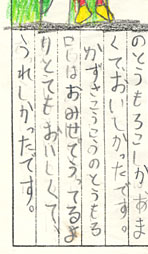 のとうもろこしが、あま
くておいしかったです。
かずさこうこうのとうもろ
こしはおみせでうってるよ
りとてもおいしくて、
うれしかったです。